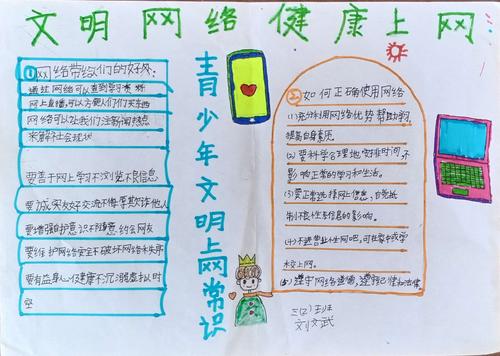 文明网络健康上网
一网络带给人们的好处:
通过网络可以查到学习资料
网上直播,可以方便人们
网络可以让我们注新闻热点
来解社会现状
要善于网上学习不浏览不良信息
要诚实友好交流不侮辱欺诈他人
要增强自护意识不随意约会网友
要维护网络安全不破坏网络秩序
要有益身心健康不沉溺虚拟时
空
青少年文明上网常识
二如何正确使用网络
(1)充分利用网络优势帮助学习,
提高自身素质。
(2)要科学合理地安排时间,不
影响正常的学习和生活。
(3)要正常选择网上信息,自觉抵
制不良信息的影响。
(4)不进营业性网吧,可在家中或学
校上网。
(5)遵守网络道德,遵守
三(2)班
刘文武